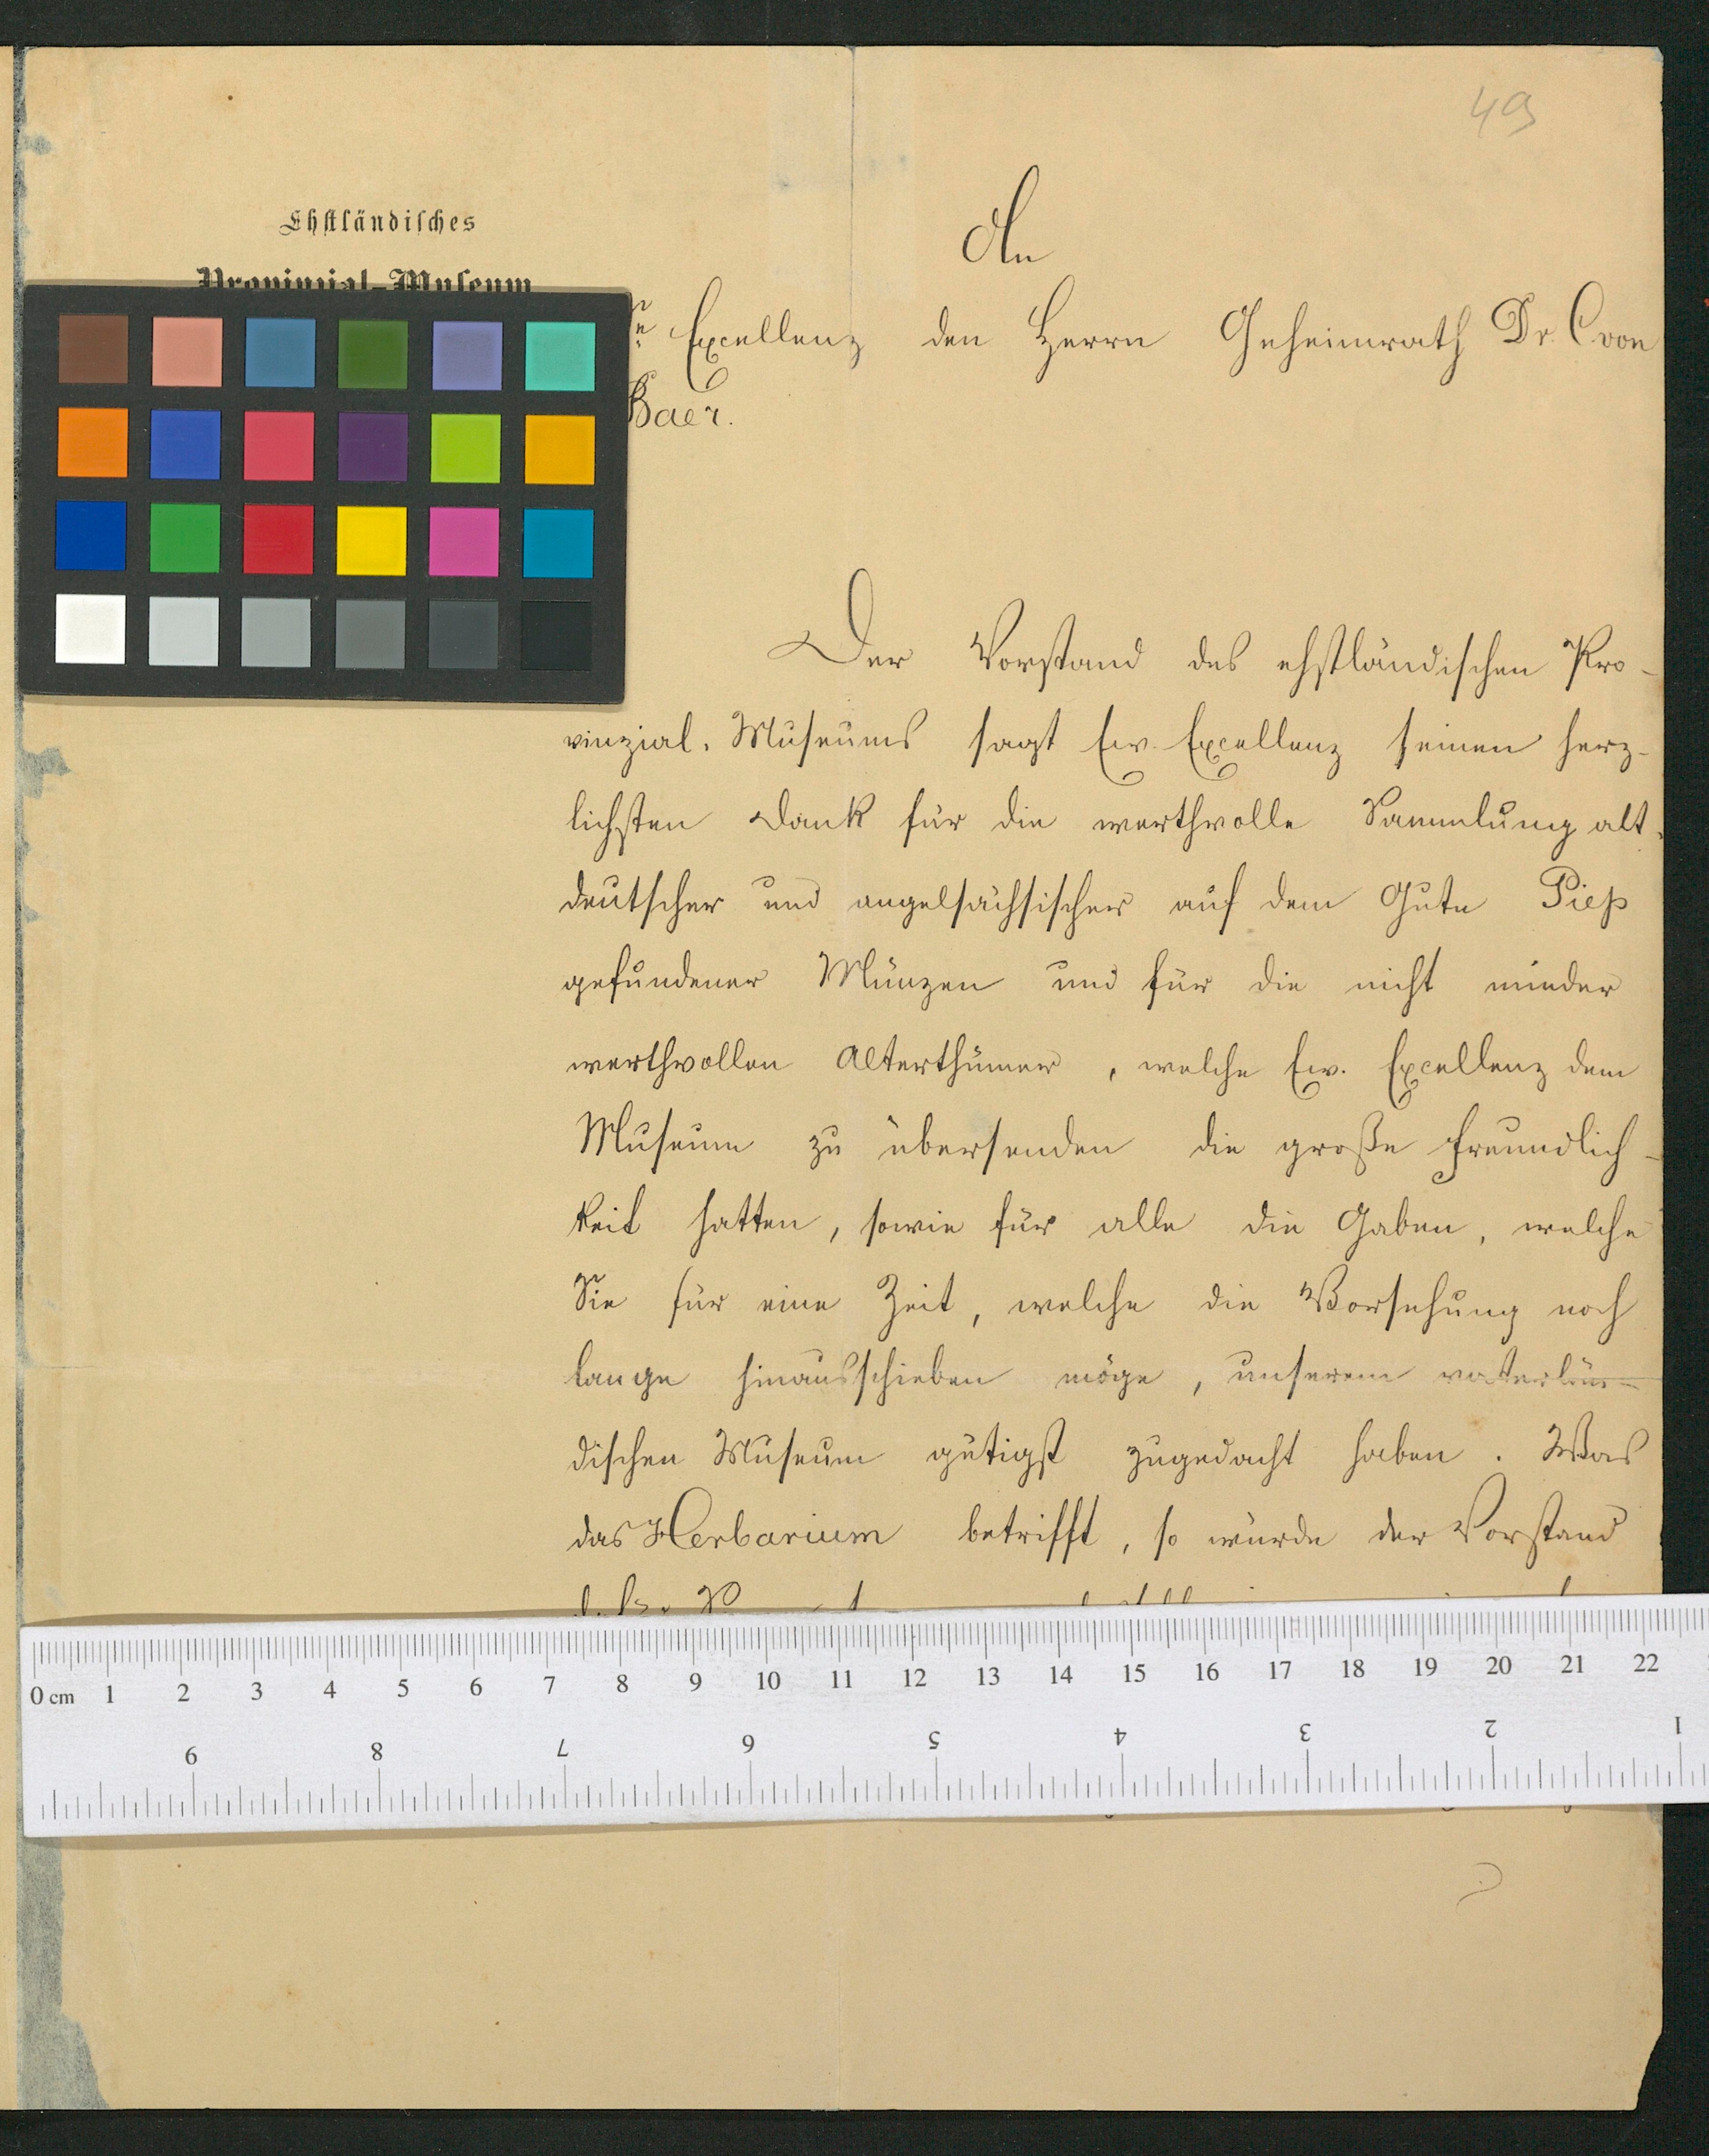 49
Ehstländisches
Provinzial-Museum
An
Excellenz den Herrn Geheimrath Dr. C von
Baer.
Der Vorstand des ehstländischen Pro-
vinzial-Museums sagt Ew. Excellenz seinen herz-
lichsten Dank für die werthvolle Sammlung alt-
deutscher und angelsächsischer auf dem Gute Piep
gefundener Münzen und für die nicht minder
werthvollen Alterthümer, welche Ew. Excellenz dem
Museum zu übersenden die große Freundlich-
keit hatten, sowie für alle die Gaben, welche
Sie für eine Zeit, welche die Vorsehung noch
lange hinausschieben möge, unserem vaterlän-
dischen Museum gütigst zugedacht haben. Was
das Herbarium betrifft, so würde der Vorstand
0 cm 1 2 3 4 5 6 7 8 9 10 11 12 13 14 15 16 17 18 19 20 21 22
9 8 7 6 5 4 3 2 1